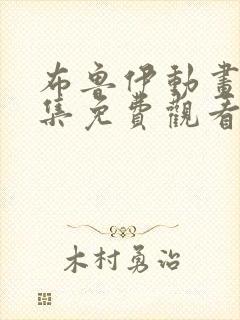 布魯伊動畫
集免費觀看
木村勇治